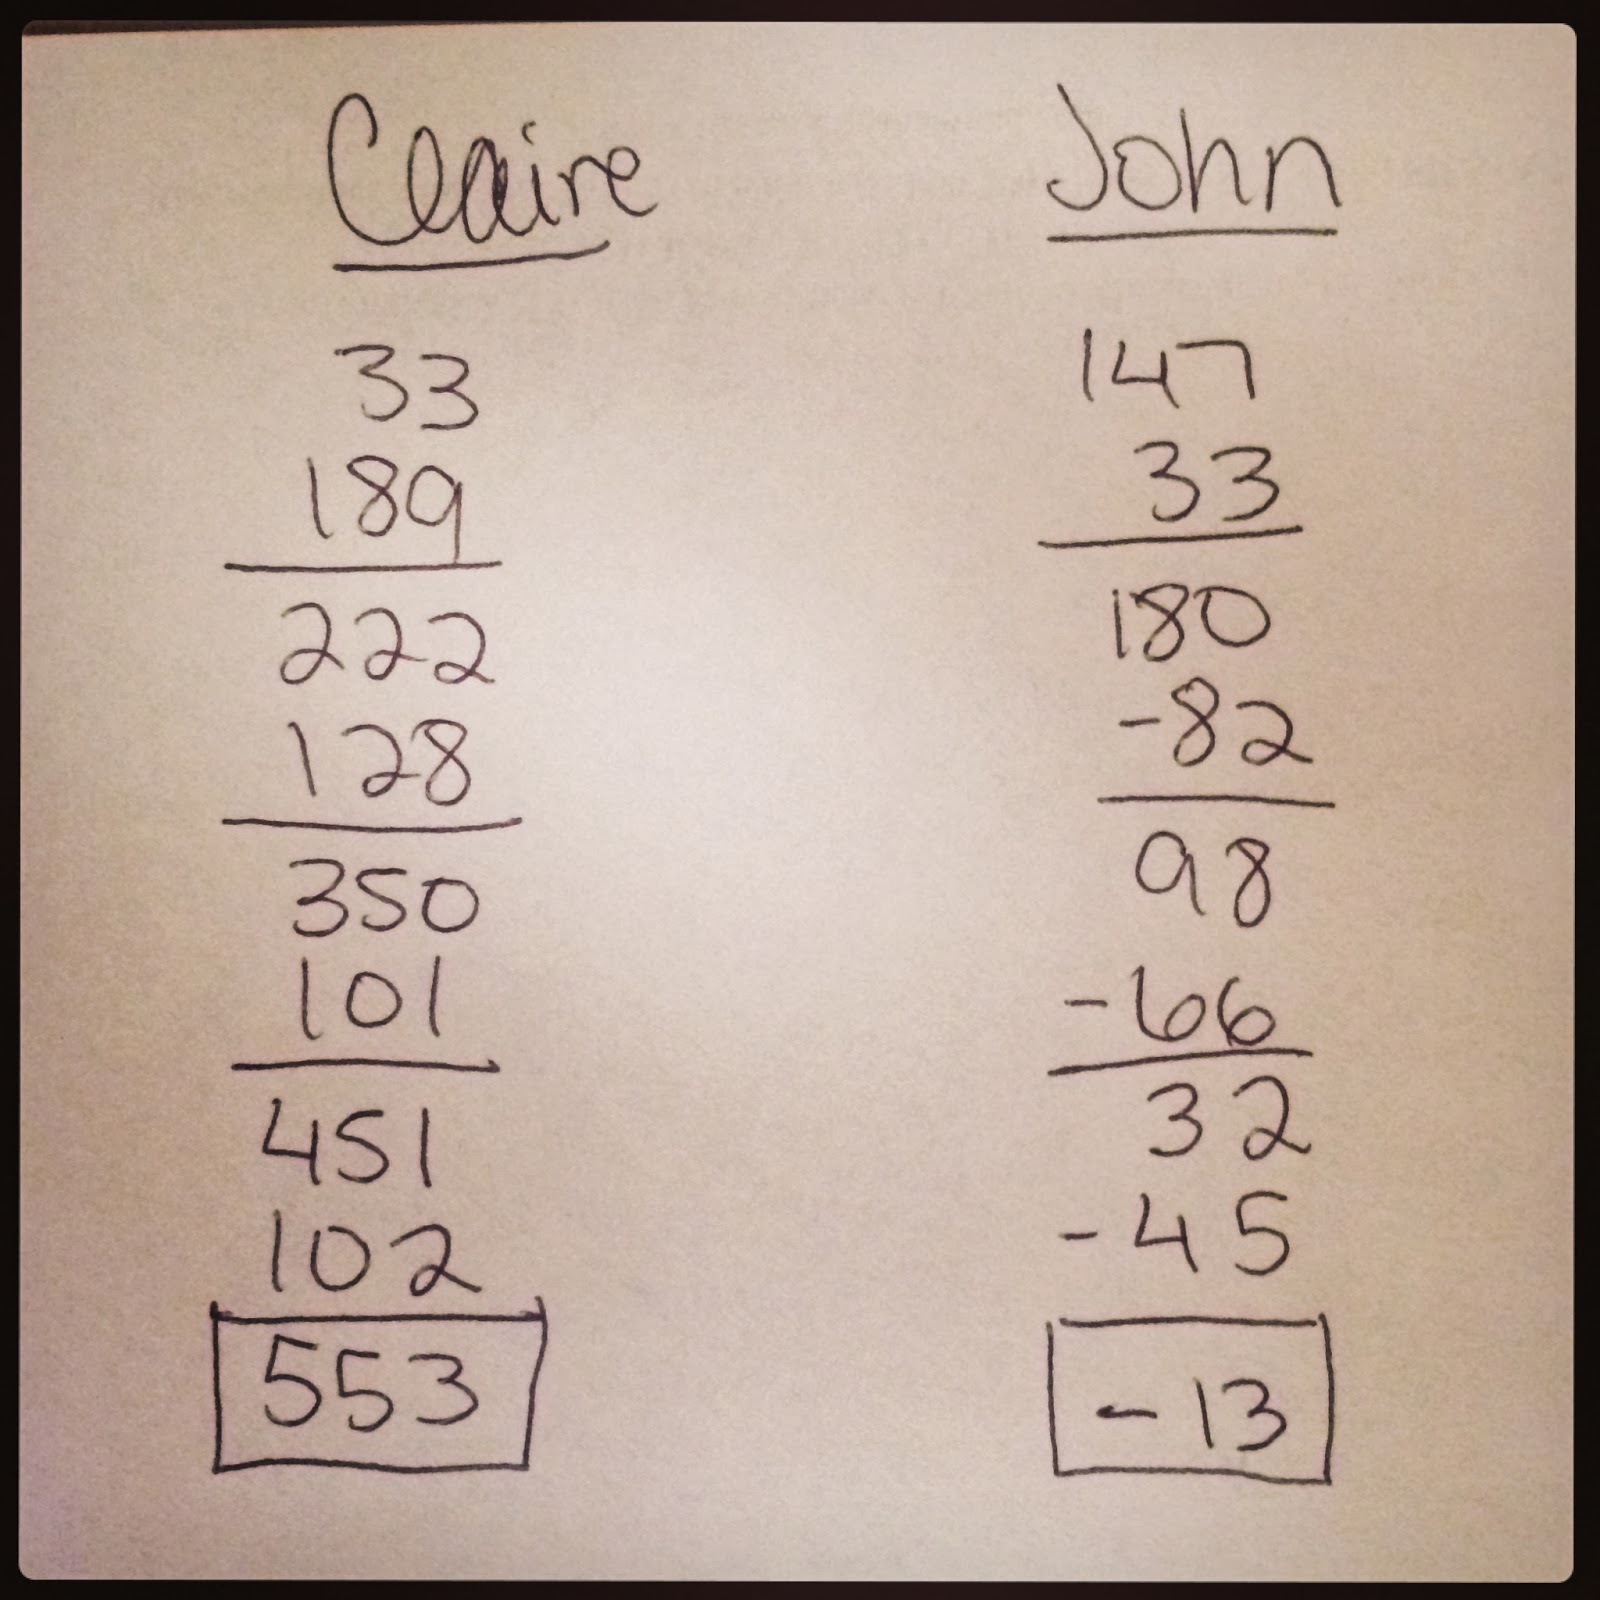 Claire
33
189
222
128
350
101
451
102
553
John
147
33
180
-82
98
-66
32
-45
-13